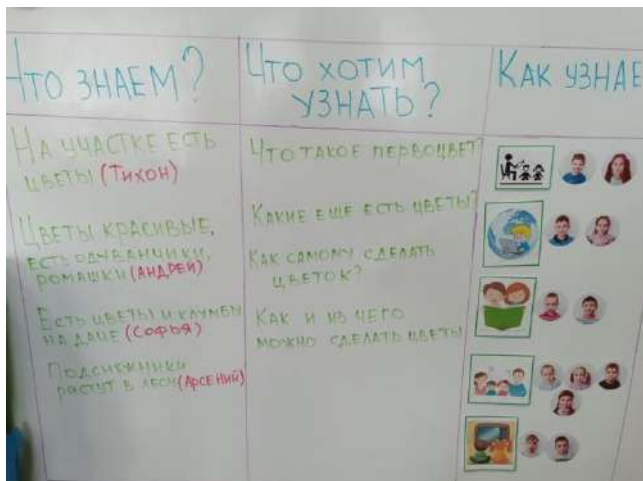 ЧТО ЗНАЕМ?
НА УЧАСТКЕ ЕСТЬ
ЦВЕТЫ (ТИХОН)
ЦВЕТЫ КРАСИВЫЕ,
ЕСТЬ ОДУВАНЧИКИ,
РОМАШКИ (АНДРЕЙ)
ЕСТЬ ЦВЕТЫ И КЛУМБЫ
НА ДАЧЕ (СОФЬЯ)
ПОДСНЕЖНИКИ
РАСТУТ В ЛЕСУ (АРСЕНИЙ)
ЧТО ХОТИМ
УЗНАТЬ?
ЧТО ТАКОЕ ПЕРВОЦВЕТ?
КАКИЕ ЕЩЕ ЕСТЬ ЦВЕТЫ?
КАК САМОМУ СДЕЛАТЬ
ЦВЕТОК?
КАК И ИЗ ЧЕГО
МОЖНО СДЕЛАТЬ ЦВЕТЫ
КАК УЗНАЕ